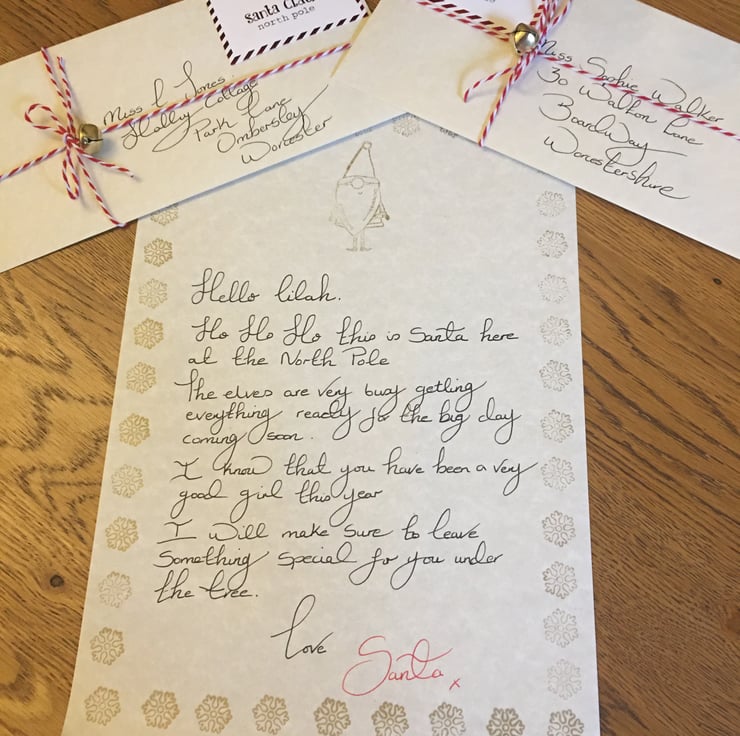 santa claus
north pole
Miss L Jones.
Holly Cottage
Park Lane
Ombersley
Worcester
Miss Sophie Walker
30 Walton Lane
BoardWay
Worcestershire
Hello lilah.
Ho Ho Ho this is Santa here
at the North Pole
The elves are very busy getting
everything ready for the big day
coming soon.
I know that you have been a very
good girl this year
I will make sure to leave
Something special for you under
the tree.
Love
Santa x